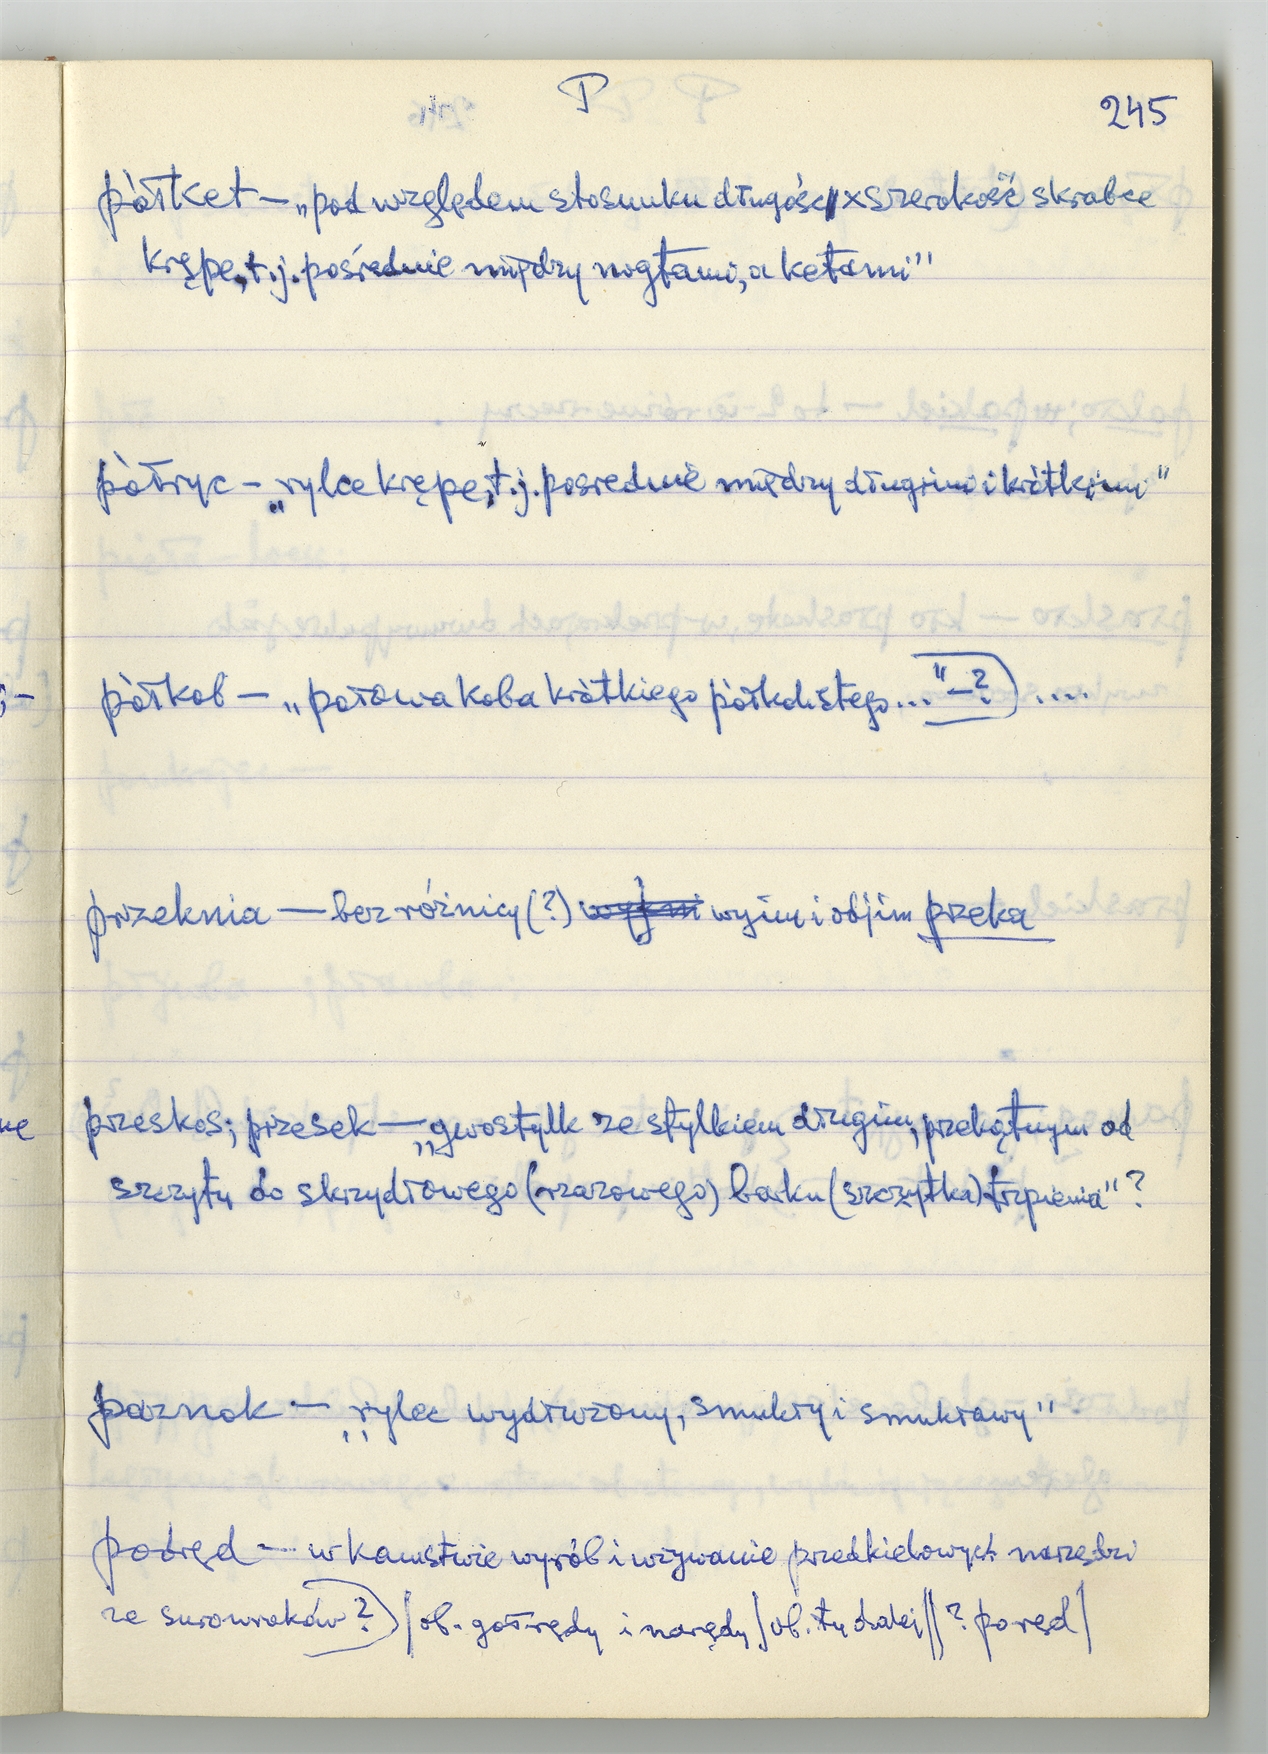 P
245
półket – „pod względem stosunku długość × szerokość skrobce
krępe, t.j. pośrednie między nogłami, a ketami"
półryc – „rylce krępe, t.j. pośrednie między długimi i krótkimi"
półkob – „połowa koba krótkiego półkolistego..." – ?) ....
przeknia — bez różnicy (?) wyjim i objim przeka
przeskos; przesek — „gwostylk ze stylkiem długim, przekątnym od
szczytu do skrzydłowego (rzazowego) barku (szczytka) trzpienia" ?
paznok — „rylec wydłużony, smukły i smukławy"
podręd — w kamstwie wyrób i używanie przedkielowych narzędzi
ze surowiaków ?) / ob. gołrędy i narędy / ob. tu dalej // ? poręd /